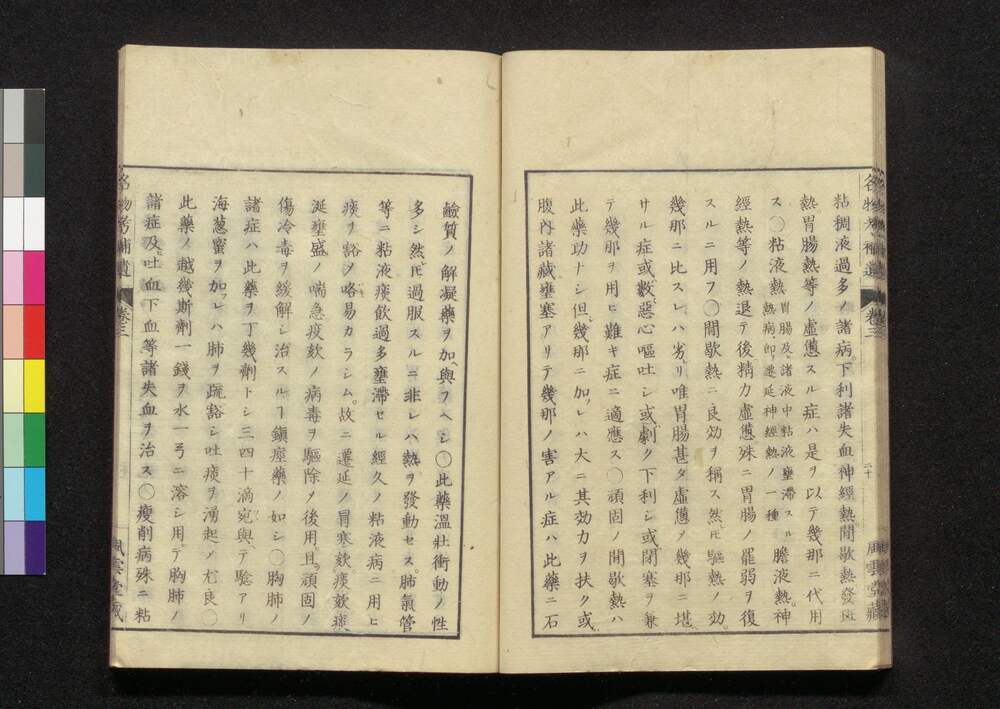 粘稠液過多ノ諸病。下利諸失血神經熱。間歇熱發斑
熱胃腸熱等ノ虛憊スル症ハ是ヲ以テ幾那ニ代用
ス〇粘液熱胃腸及諸液中粘液壅滯スル熱病、即遷延神經熱ノ一種膽液熱。神
經熱等ノ熱退テ後。精力虛憊殊ニ胃腸ノ罷弱ヲ復
スルニ用フ〇間歇熱ニ良効ヲ稱ス然𪜈驅熱ノ効。
幾那ニ比スレハ劣リ唯胃腸甚タ虛憊ヲ幾那ニ堪
サル症或ハ數〻惡心嘔吐シ或ハ劇ク下利シ或ハ閉塞ヲ兼
テ幾那ヲ用ヒ難キ症ニ適應ス〇頑固ノ間歇熱ハ
此藥功ナシ但シ幾那ニ加フレハ大ニ其効力ヲ扶ク或ハ
腹內諸臟壅塞アリテ幾那ノ害アル症ハ此藥ニ石
名物考補遺 卷三 二十 風雲堂藏
鹼質ノ解凝藥ヲ加ヘ與フヘシ〇此藥溫壯衝動ノ性
多シ然𪜈過服スルニ非レハ熱ヲ發動セス。肺氣管
等ニ粘液痰飲過多壅滯セル經久ノ粘液病ニ用ヒ
痰ヲ豁メ咯易カラシム。故ニ遷延ノ冒寒欬。痰欬
涎壅盛ノ喘急疫欬ノ病毒ヲ驅除メ後用。且頑固ノ
傷冷毒ヲ緩解シ治スルヿ鎭痙藥ノ如シ〇胸肺ノ
諸症ハ此藥ヲ丁幾劑トシ三四十滴宛與テ驗アリ
海葱蜜ヲ加フレハ肺ヲ疏豁シ吐痰ヲ湧起メ尤良〇
此藥ノ越幾斯劑一錢ヲ水一弓ニ溶シ用テ胸肺ノ
諸症及吐血下血等諸失血ヲ治ス〇瘦削病殊ニ粘
名物考補遺 卷三 風雲堂藏